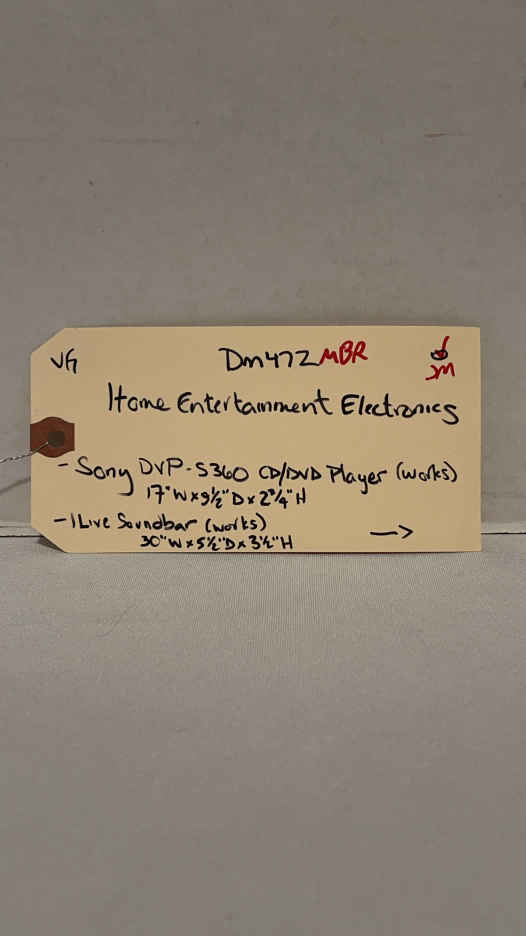 VG DM472 MBR
JM
Home Entertainment Electronics
- Sony DVP-S360 CD/DVD Player (works)
17"W x 9½"D x 2¾"H
- iLive Soundbar (works)
30"W x 5½"D x 3½"H →